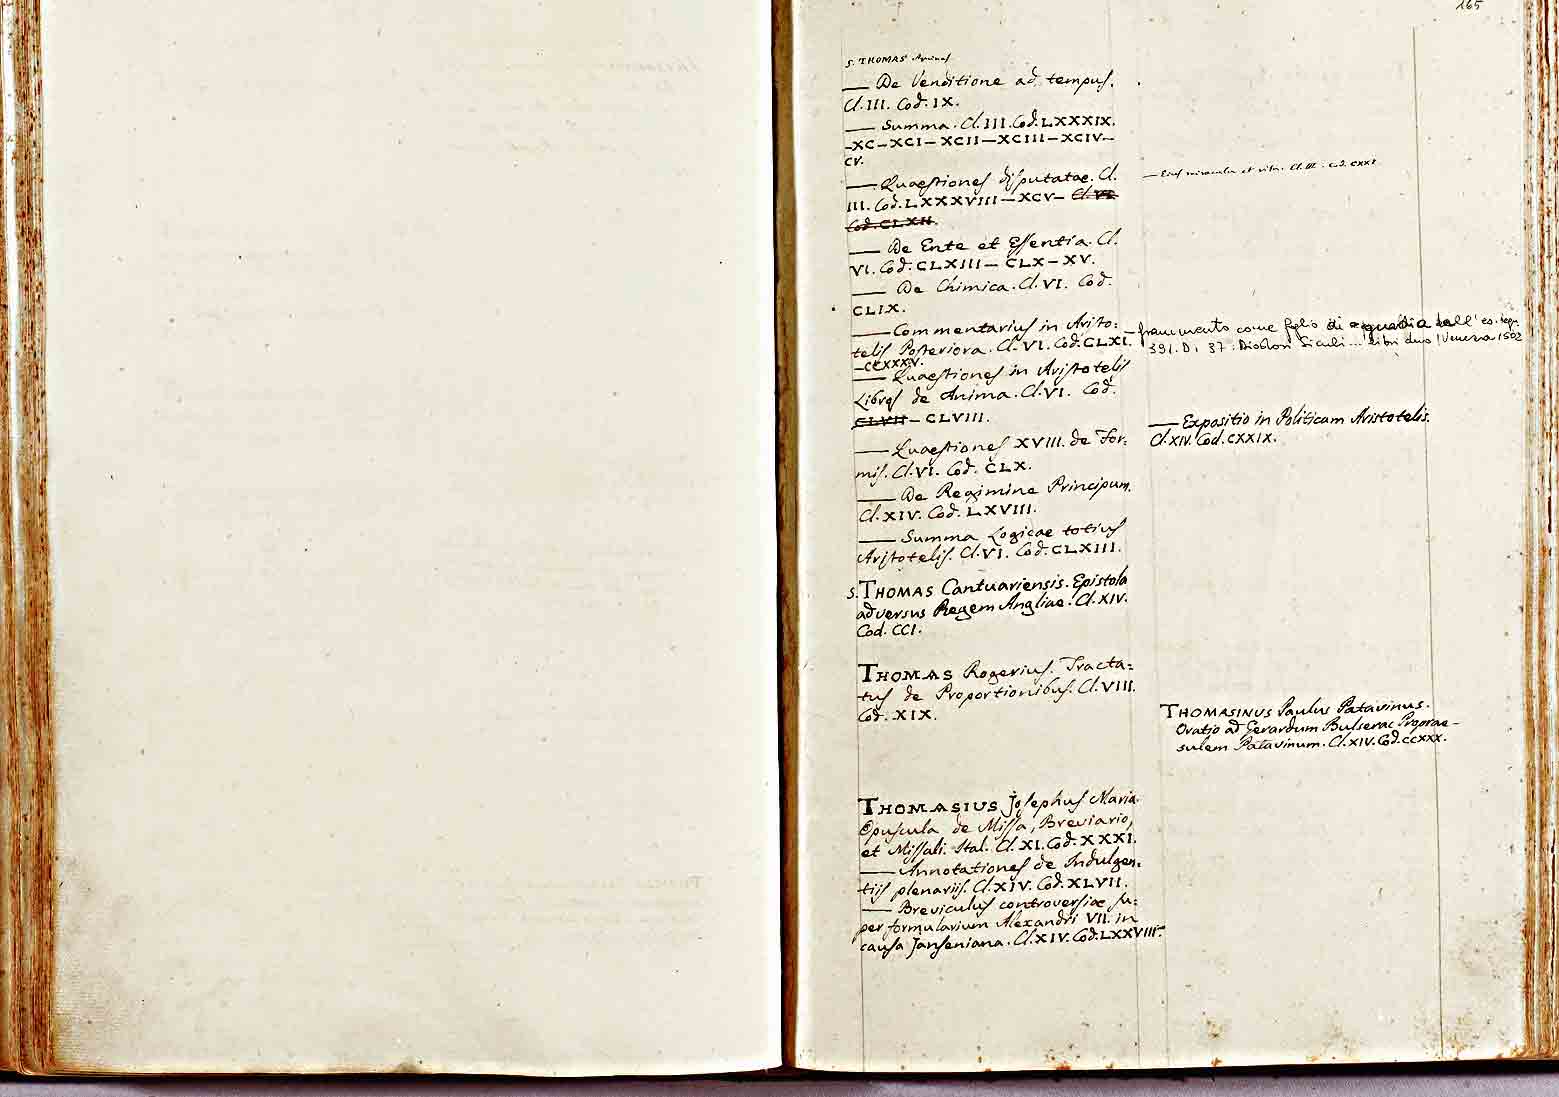 165
S. THOMAS Aquinas
— De Venditione ad tempus.
Cl. III. Cod. IX.
— Summa. Cl. III. Cod. LXXXIX.
– XC – XCI – XCII – XCIII – XCIV –
CV.
— Quaestiones disputatae. Cl.
III. Cod. LXXXVIII – XCV – Cl. VI.
Cod. CLXII.
— De Ente et Essentia. Cl.
VI. Cod. CLXIII – CLX – XV.
— De Chimica. Cl. VI. Cod.
CLIX.
— Commentarius in Aristo=
telis Posteriora. Cl. VI. Cod. CLXI.
– CCXXXV.
— Quaestiones in Aristotelis
Libros de Anima. Cl. VI. Cod.
CLVII – CLVIII.
— Quaestiones XVIII. de For=
mis. Cl. VI. Cod. CLX.
— De Regimine Principum.
Cl. XIV. Cod. LXVIII.
— Summa Logicae totius
Aristotelis. Cl. VI. Cod. CLXIII.
S. THOMAS Cantuariensis. Epistola
adversus Regem Angliae. Cl. XIV.
Cod. CCI.
THOMAS Rogerius. Tracta=
tus de Proportionibus. Cl. VIII.
Cod. XIX.
THOMASIUS Josephus Maria
Opuscula de Missa, Breviario,
et Missali. Ital. Cl. XI. Cod. XXXI.
— Annotationes de Indulgen=
tiis plenariis. Cl. XIV. Cod. XLVII.
— Breviculus controversiae su=
per formularium Alexandri VII. in
causa Janseniana. Cl. XIV. Cod. LXXVIII.
— Eius miracula et vita. Cl. III. Cod. CXXI
– frammento come foglio di guardia dell'es. segn.
391. D. 37: Diodori Siculi ... libri duo (Venezia 1502
— Expositio in Politicam Aristotelis.
Cl. XIV. Cod. CXXIX.
THOMASINUS Paulus Patavinus.
Oratio ad Gerardum Bulserac Prorae-
sulem Patavinum. Cl. XIV. Cod. CCXXX.